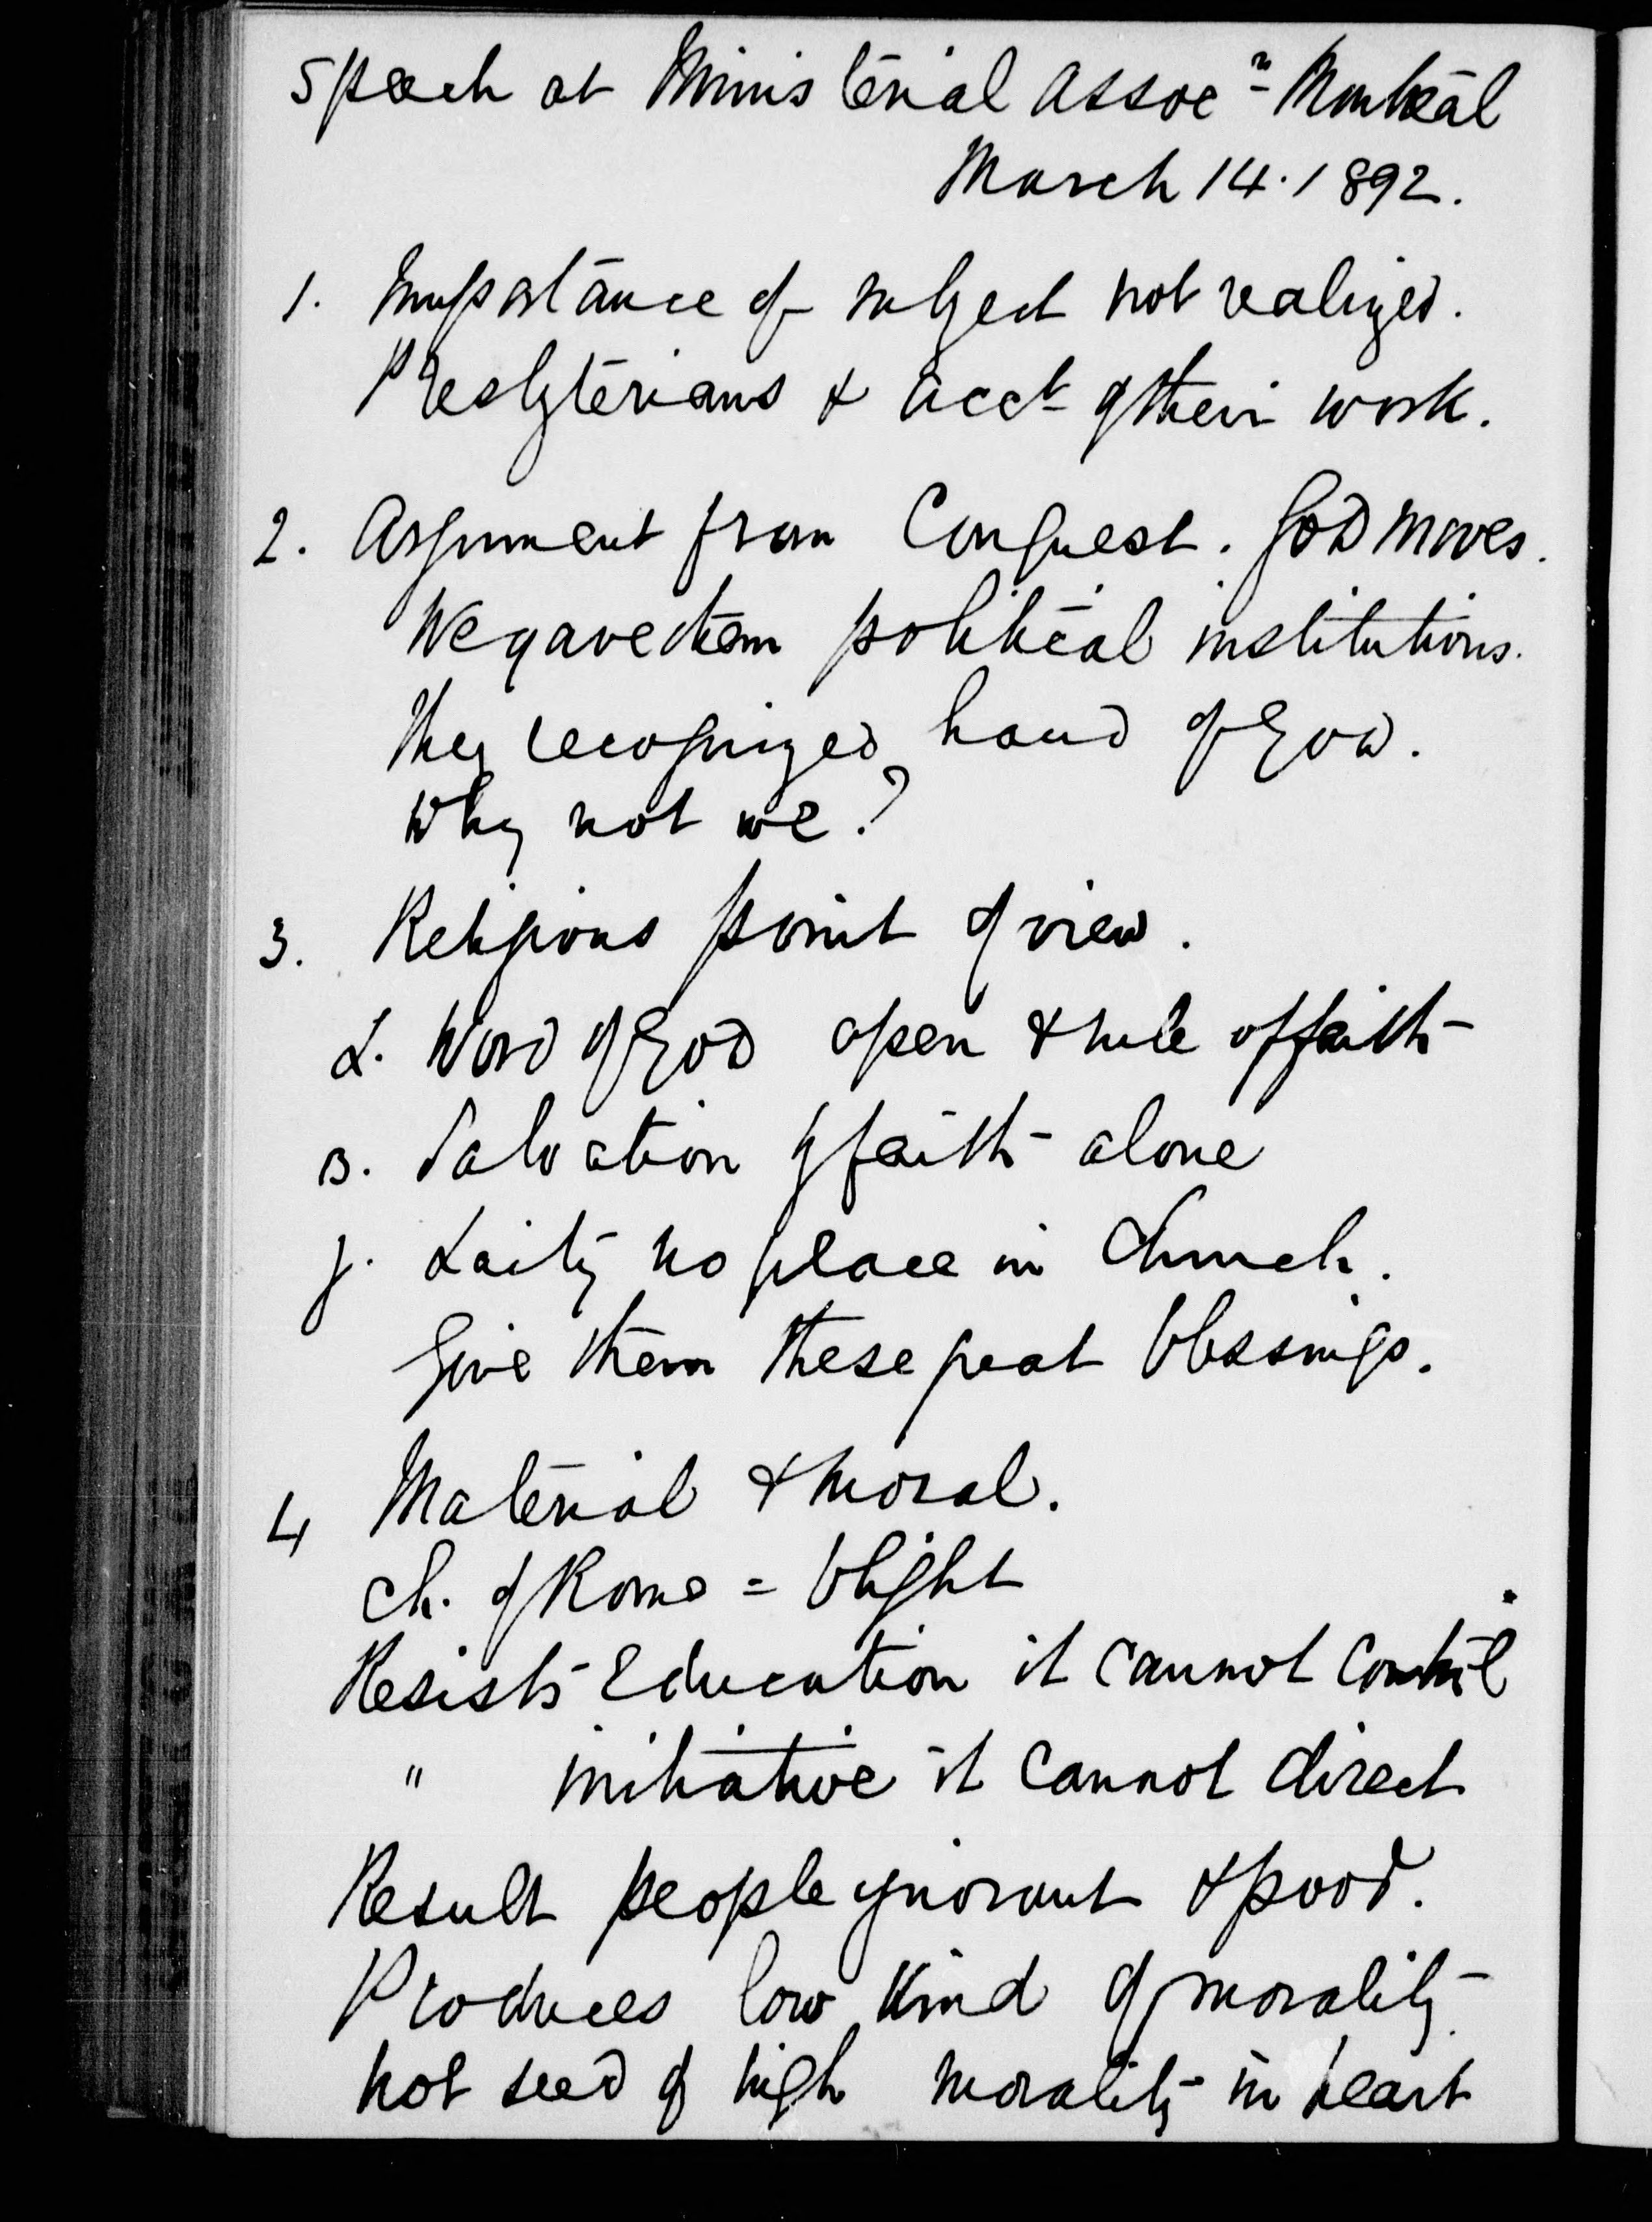 Speech at Ministerial Assocn Montreal
March 14. 1892.
1. Importance of subject not realized.
Presbyterians & acct of their work.
2. Argument from Conquest. God moves.
We gave them political institutions.
They recognized hand of God.
Why not we?
3. Religious point of view.
α. Word of God open & rule of faith
β. Salvation by faith alone
γ. Laity no place in Church.
Give them these great blessings.
4 Material & moral.
Ch. of Rome = blight
Resists Education it cannot control
" initiative it cannot direct
Result people ignorant & poor.
Produces low kind of morality
not seed of high morality in heart